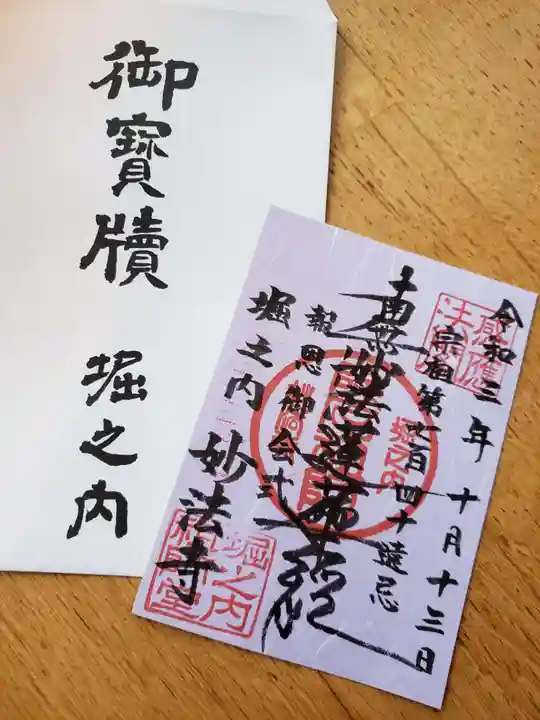 御寶牘 堀之内
令和三年十月十三日
宗祖第七百四十遠忌
南無妙法蓮華経
報恩御会式
堀之内 妙法寺
感應
堀之内
堀之内
祖師堂